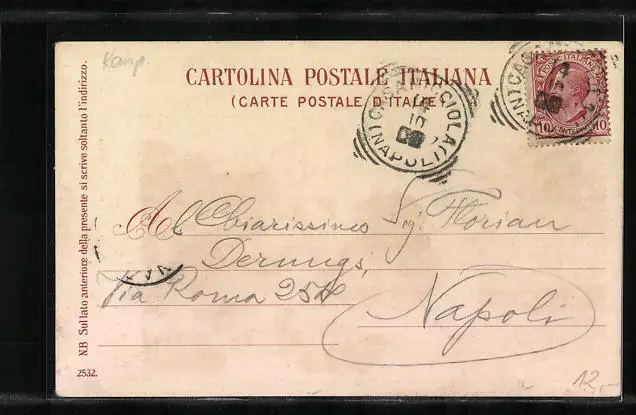 Kamp.
CARTOLINA POSTALE ITALIANA
(CARTE POSTALE D'ITALIE)
CASAMICCIOLA
(NAPOLI)
POSTE ITALIANE
10 10
N.B Sul lato anteriore della presente si scrive soltanto l'indirizzo.
Al Chiarissimo Sig. Florian
Derungs,
Via Roma 254
Napoli
2532.
12,-